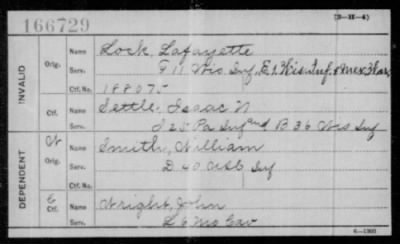 166729
(3—II—4)
INVALID
Orig.
Name Lock, Lafayette
Serv. F 11 Wis Inf, E 1. Wis Inf. & Mex. War
Ctf. No. 18807
Ctf.
Name Settle, Isaac N
Serv. I 25 Pa Inf and B 36 Wis Inf
DEPENDENT
W
Orig.
Name Smith, William
Serv. D 40 Inf
Ctf. No.
C
Ctf.
Name Wright, John
Serv. L 6 Mo Cav
6—1301